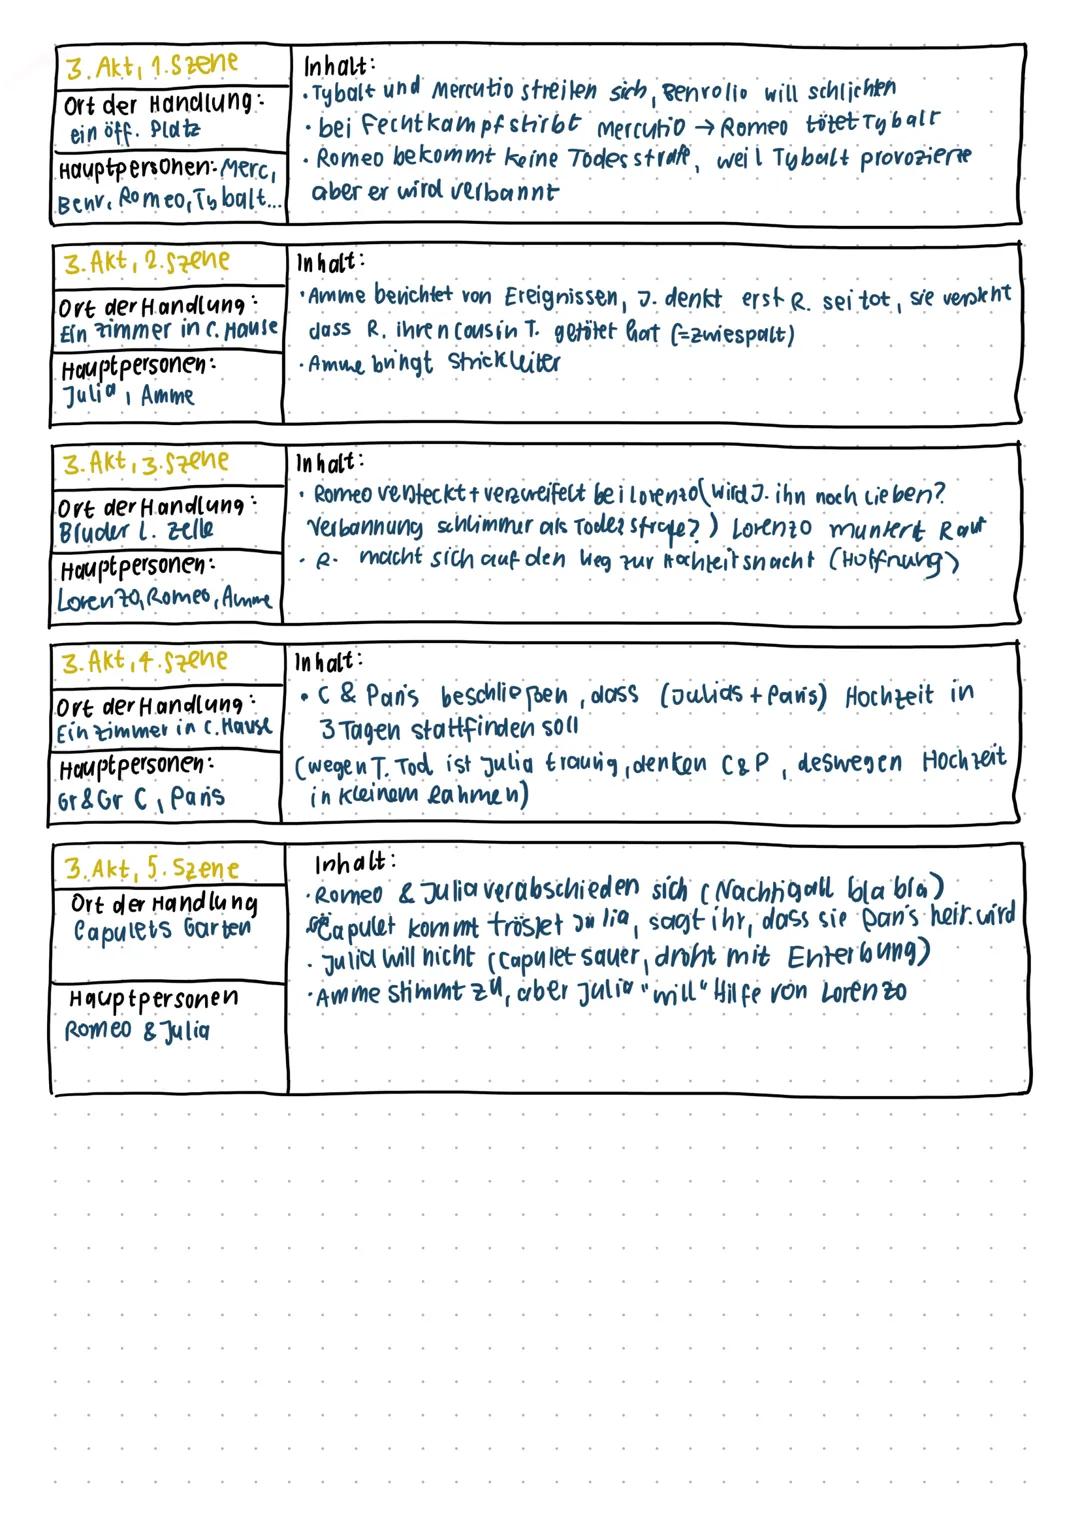 3. Akt, 1. Szene
Ort der Handlung:
ein öff. Platz
Hauptpersonen: Merc,
Benv, Romeo, Tybalt...
Inhalt:
· Tybalt und Mercutio streiten sich, Benvolio will schlichten
· bei Fechtkampf stirbt Mercutio → Romeo tötet Tybalt
· Romeo bekommt keine Todesstrafe, weil Tybalt provozierte
aber er wird verbannt
3. Akt, 2. Szene
Ort der Handlung:
Ein Zimmer in C. Hause
Hauptpersonen:
Julia, Amme
Inhalt:
· Amme berichtet von Ereignissen, J. denkt erst R. sei tot, sie versteht
dass R. ihren Cousin T. getötet hat (=Zwiespalt)
· Amme bringt Strickleiter
3. Akt, 3. Szene
Ort der Handlung:
Bruder L. Zelle
Hauptpersonen:
Lorenzo, Romeo, Amme
Inhalt:
· Romeo versteckt + verzweifelt bei Lorenzo (Wird J. ihn noch lieben?
Verbannung schlimmer als Todesstrafe?) Lorenzo muntert R auf
· R. macht sich auf den Weg zur Hochzeitsnacht (Hoffnung)
3. Akt, 4. Szene
Ort der Handlung:
Ein Zimmer in C. Hause
Hauptpersonen:
Gr & Gr C, Paris
Inhalt:
· C & Paris beschließen, dass (Julias + Paris) Hochzeit in
3 Tagen stattfinden soll
(wegen T. Tod ist Julia traurig, denken C & P, deswegen Hochzeit
in kleinem Rahmen)
3. Akt, 5. Szene
Ort der Handlung
Capulets Garten
Hauptpersonen
Romeo & Julia
Inhalt:
· Romeo & Julia verabschieden sich (Nachtigall bla bla)
Capulet kommt tröstet Julia, sagt ihr, dass sie Paris heir. wird
· Julia will nicht (Capulet sauer, droht mit Enterbung)
· Amme stimmt zu, aber Julia "will" Hilfe von Lorenzo